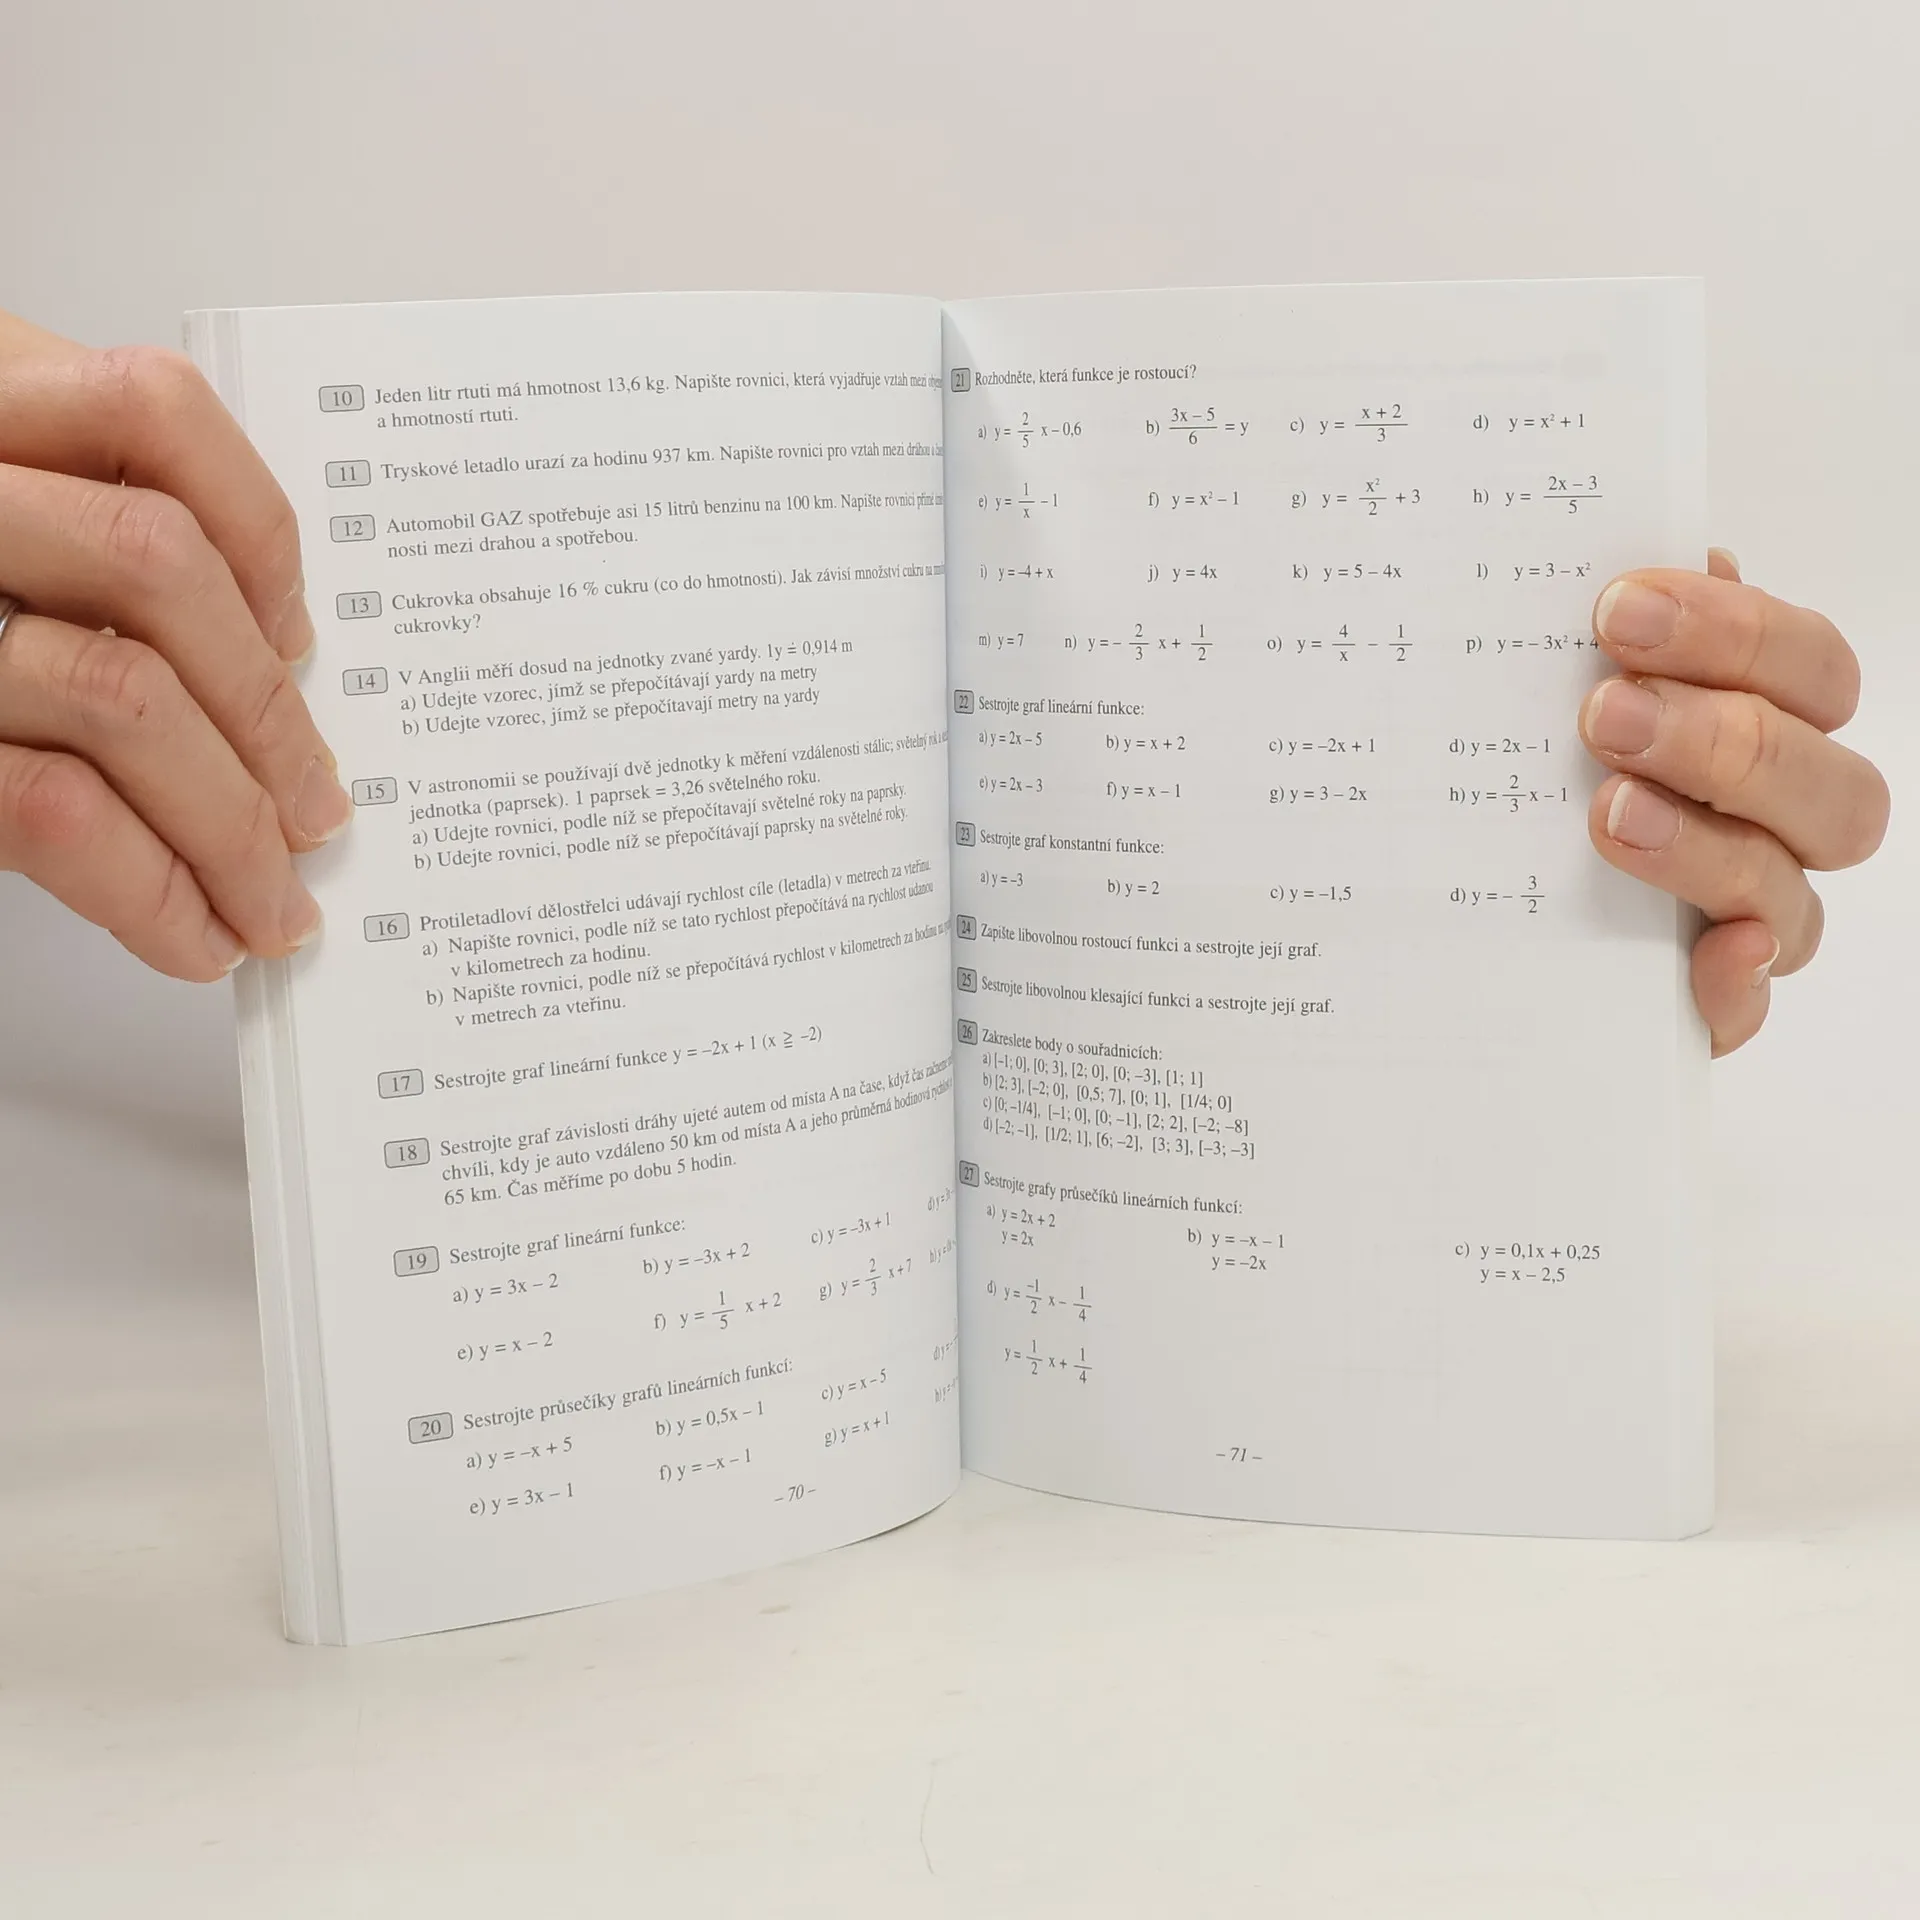 10 Jeden litr rtuti má hmotnost 13,6 kg. Napište rovnici, která vyjadřuje vztah mezi
a hmotností rtuti.
11 Tryskové letadlo urazí za hodinu 937 km. Napište rovnici pro vztah mezi dráhou a
12 Automobil GAZ spotřebuje asi 15 litrů benzinu na 100 km. Napište rovnici přímé
nosti mezi drahou a spotřebou.
13 Cukrovka obsahuje 16 % cukru (co do hmotnosti). Jak závisí množství cukru na
cukrovky?
14 V Anglii měří dosud na jednotky zvané yardy. 1y ≐ 0,914 m
a) Udejte vzorec, jímž se přepočítávají yardy na metry
b) Udejte vzorec, jímž se přepočítavají metry na yardy
15 V astronomii se používají dvě jednotky k měření vzdálenosti stálic; světelný rok a
jednotka (paprsek). 1 paprsek = 3,26 světelného roku.
a) Udejte rovnici, podle níž se přepočítavají světelné roky na paprsky.
b) Udejte rovnici, podle níž se přepočítávají paprsky na světelné roky.
16 Protiletadloví dělostřelci udávají rychlost cíle (letadla) v metrech za vteřinu.
a) Napište rovnici, podle níž se tato rychlost přepočítává na rychlost udanou
v kilometrech za hodinu.
b) Napište rovnici, podle níž se přepočítává rychlost v kilometrech za hodinu na
v metrech za vteřinu.
17 Sestrojte graf lineární funkce y = –2x + 1 (x ≧ –2)
18 Sestrojte graf závislosti dráhy ujeté autem od místa A na čase, když čas začneme
chvíli, kdy je auto vzdáleno 50 km od místa A a jeho průměrná hodinová rychlost
65 km. Čas měříme po dobu 5 hodin.
19 Sestrojte graf lineární funkce:
a) y = 3x – 2 b) y = –3x + 2 c) y = –3x + 1 d) y =
e) y = x – 2 f) y = 1/5 x + 2 g) y = 2/3 x + 7 h) y =
20 Sestrojte průsečíky grafů lineárních funkcí:
a) y = –x + 5 b) y = 0,5x – 1 c) y = x – 5 d) y =
e) y = 3x – 1 f) y = –x – 1 g) y = x + 1 h) y =
– 70 –
21 Rozhodněte, která funkce je rostoucí?
a) y = 2/5 x – 0,6 b) (3x – 5)/6 = y c) y = (x + 2)/3 d) y = x² + 1
e) y = 1/x – 1 f) y = x² – 1 g) y = x²/2 + 3 h) y = (2x – 3)/5
i) y = –4 + x j) y = 4x k) y = 5 – 4x l) y = 3 – x²
m) y = 7 n) y = – 2/3 x + 1/2 o) y = 4/x – 1/2 p) y = – 3x² + 4
22 Sestrojte graf lineární funkce:
a) y = 2x – 5 b) y = x + 2 c) y = –2x + 1 d) y = 2x – 1
e) y = 2x – 3 f) y = x – 1 g) y = 3 – 2x h) y = 2/3 x – 1
23 Sestrojte graf konstantní funkce:
a) y = –3 b) y = 2 c) y = –1,5 d) y = – 3/2
24 Zapište libovolnou rostoucí funkci a sestrojte její graf.
25 Sestrojte libovolnou klesající funkci a sestrojte její graf.
26 Zakreslete body o souřadnicích:
a) [–1; 0], [0; 3], [2; 0], [0; –3], [1; 1]
b) [2; 3], [–2; 0], [0,5; 7], [0; 1], [1/4; 0]
c) [0; –1/4], [–1; 0], [0; –1], [2; 2], [–2; –8]
d) [–2; –1], [1/2; 1], [6; –2], [3; 3], [–3; –3]
27 Sestrojte grafy průsečíků lineárních funkcí:
a) y = 2x + 2 b) y = –x – 1 c) y = 0,1x + 0,25
y = 2x y = –2x y = x – 2,5
d) y = –1/2 x – 1/4
y = 1/2 x + 1/4
– 71 –